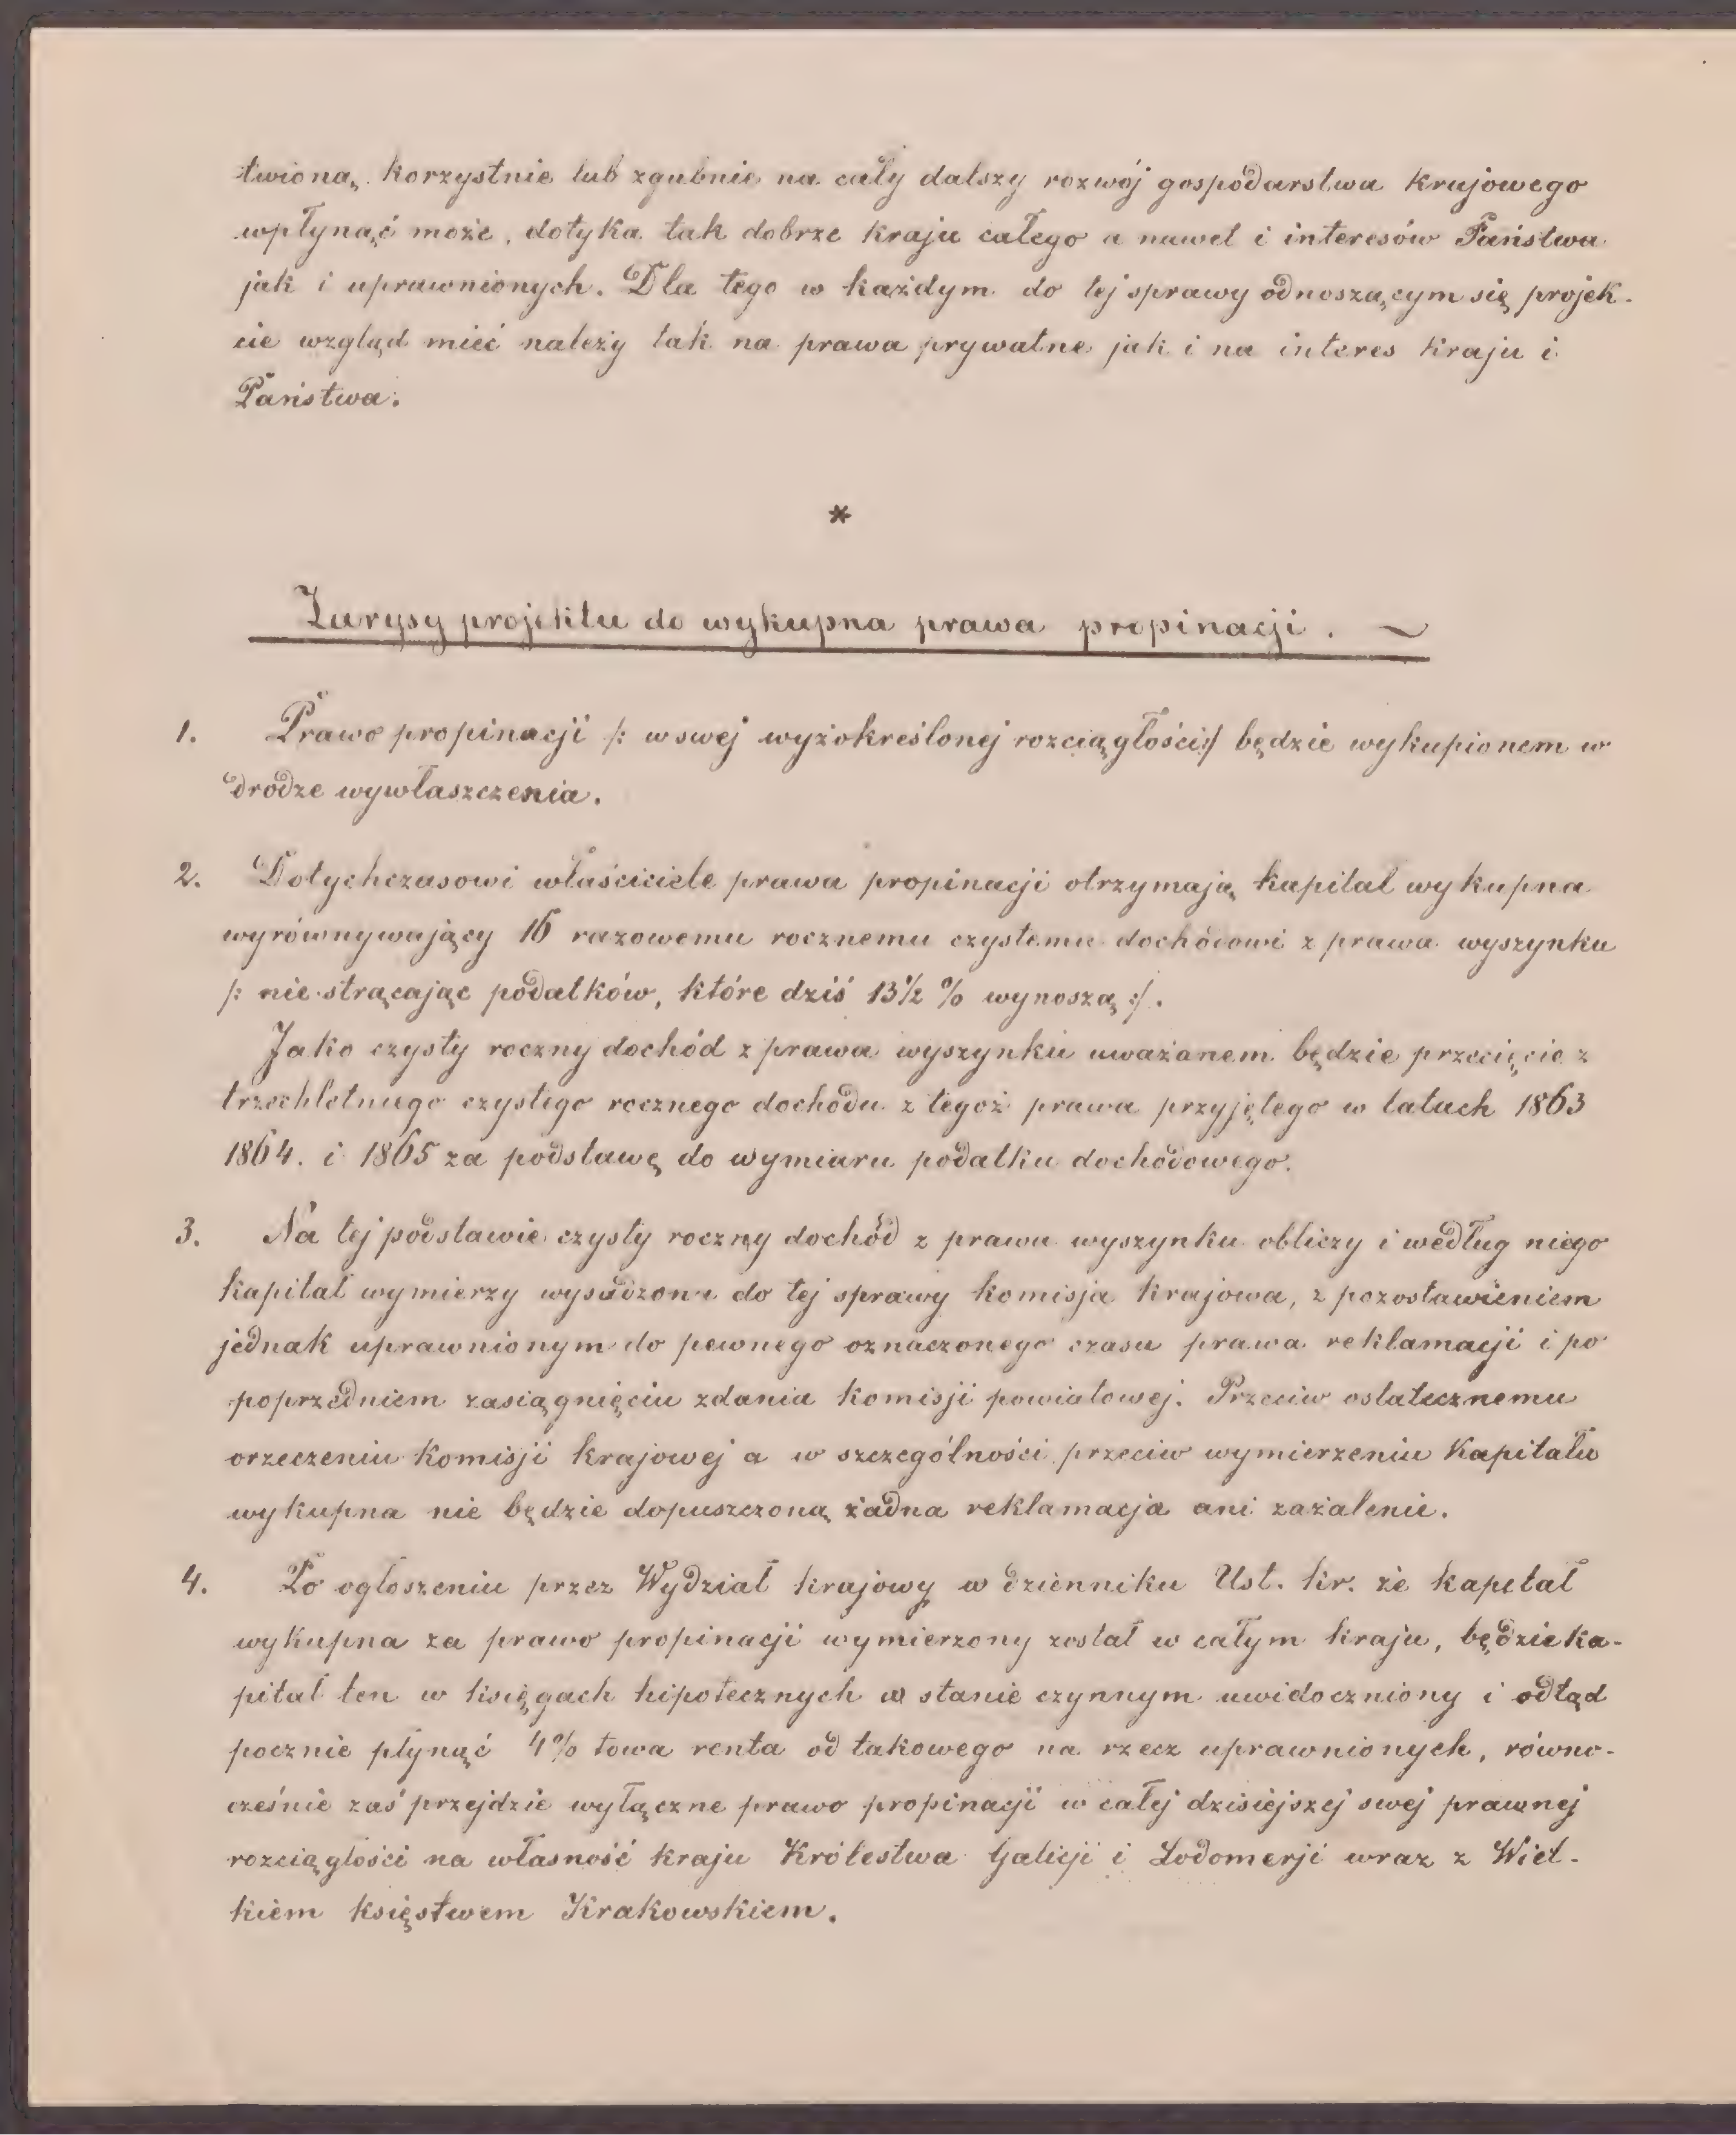 twioną korzystnie lub zgubnie na cały dalszy rozwój gospodarstwa krajowego
wpłynąć może, dotyka tak dobrze kraju całego a nawet i interesów Państwa
jak i uprawnionych. Dla tego w każdym do tej sprawy odnoszącym się projek-
cie wzgląd mieć należy tak na prawa prywatne jak i na interes kraju i
Państwa.
*
Zarysy projektu do wykupna prawa propinacji. ~
1. Prawo propinacji /: w swej wyżokreślonej rozciągłości :/ będzie wykupionem w
drodze wywłaszczenia.
2. Dotychczasowi właściciele prawa propinacji otrzymają kapitał wykupna
wyrównywający 16 razowemu rocznemu czystemu dochodowi z prawa wyszynku
/: nie strącając podatków, które dziś 13½ % wynoszą :/.
Jako czysty roczny dochód z prawa wyszynku uważanem będzie przecięcie z
trzechletniego czystego rocznego dochodu z tegoż prawa przyjętego w latach 1863
1864. i 1865 za podstawę do wymiaru podatku dochodowego.
3. Na tej podstawie czysty roczny dochód z prawa wyszynku obliczy i według niego
kapitał wymierzy wysadzona do tej sprawy komisja krajowa, z pozostawieniem
jednak uprawnionym do pewnego oznaczonego czasu prawa reklamacji i po
poprzedniem zasiągnięciu zdania komisji powiatowej. Przeciw ostatecznemu
orzeczeniu komisji krajowej a w szczególności przeciw wymierzeniu kapitału
wykupna nie będzie dopuszczoną żadna reklamacja ani zażalenie.
4. Po ogłoszeniu przez Wydział krajowy w dzienniku Ust. kr. że kapitał
wykupna za prawo propinacji wymierzony został w całym kraju, będzie ka-
pitał ten w księgach hipotecznych w stanie czynnym uwidoczniony i odtąd
pocznie płynąć 4% towa renta od takowego na rzecz uprawnionych, równo-
cześnie zaś przejdzie wyłączne prawo propinacji w całej dzisiejszej swej prawnej
rozciągłości na własność kraju Królestwa Galicji i Lodomerji wraz z Wiel-
kiem księstwem Krakowskiem.